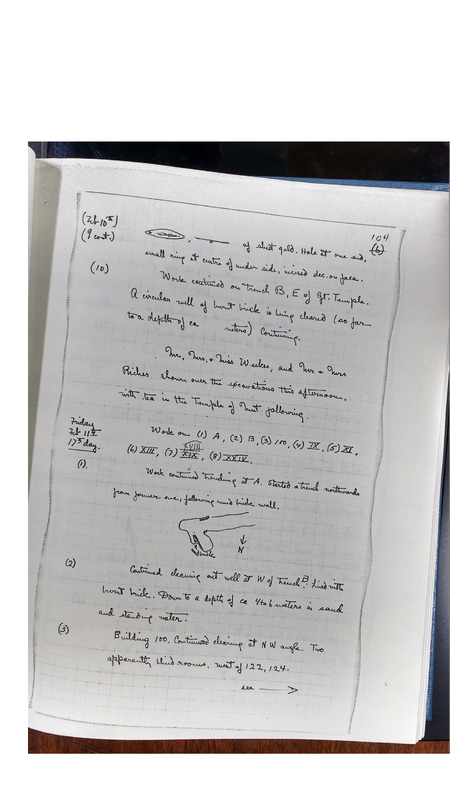 104
(Feb 10th) (6)
(9 cont.) , of sheet gold. Hole at one end,
small ring at centre of under side, incised dec. on face.
(10) Work continued on Trench B, E of Gt. Temple.
A circular well of burnt brick is being cleared (so far
to a depth of ca meters) Continuing.
Mr., Mrs. + Miss Weekes, and Mr + Mrs
Riches shown over the excavations this afternoon,
with tea in the Temple of Mut following.
Friday
Feb 11th
17th day.
Work on (1) A, (2) B, (3) 100, (4) IX, (5) XI,
(6) XIII, (7) XVIII XIX, (8) XXIV.
(1). Work continued trenching at A. Started a trench northwards
from former one, following mud brick wall.
brick N
(2) Continued clearing out well at W of Trench B. Lined with
burnt brick. Down to a depth of ca 4 to 6 meters is sand
and standing water.
(3) Building 100. Continued clearing at NW angle. Two
apparently blind rooms, west of 122, 124.
see